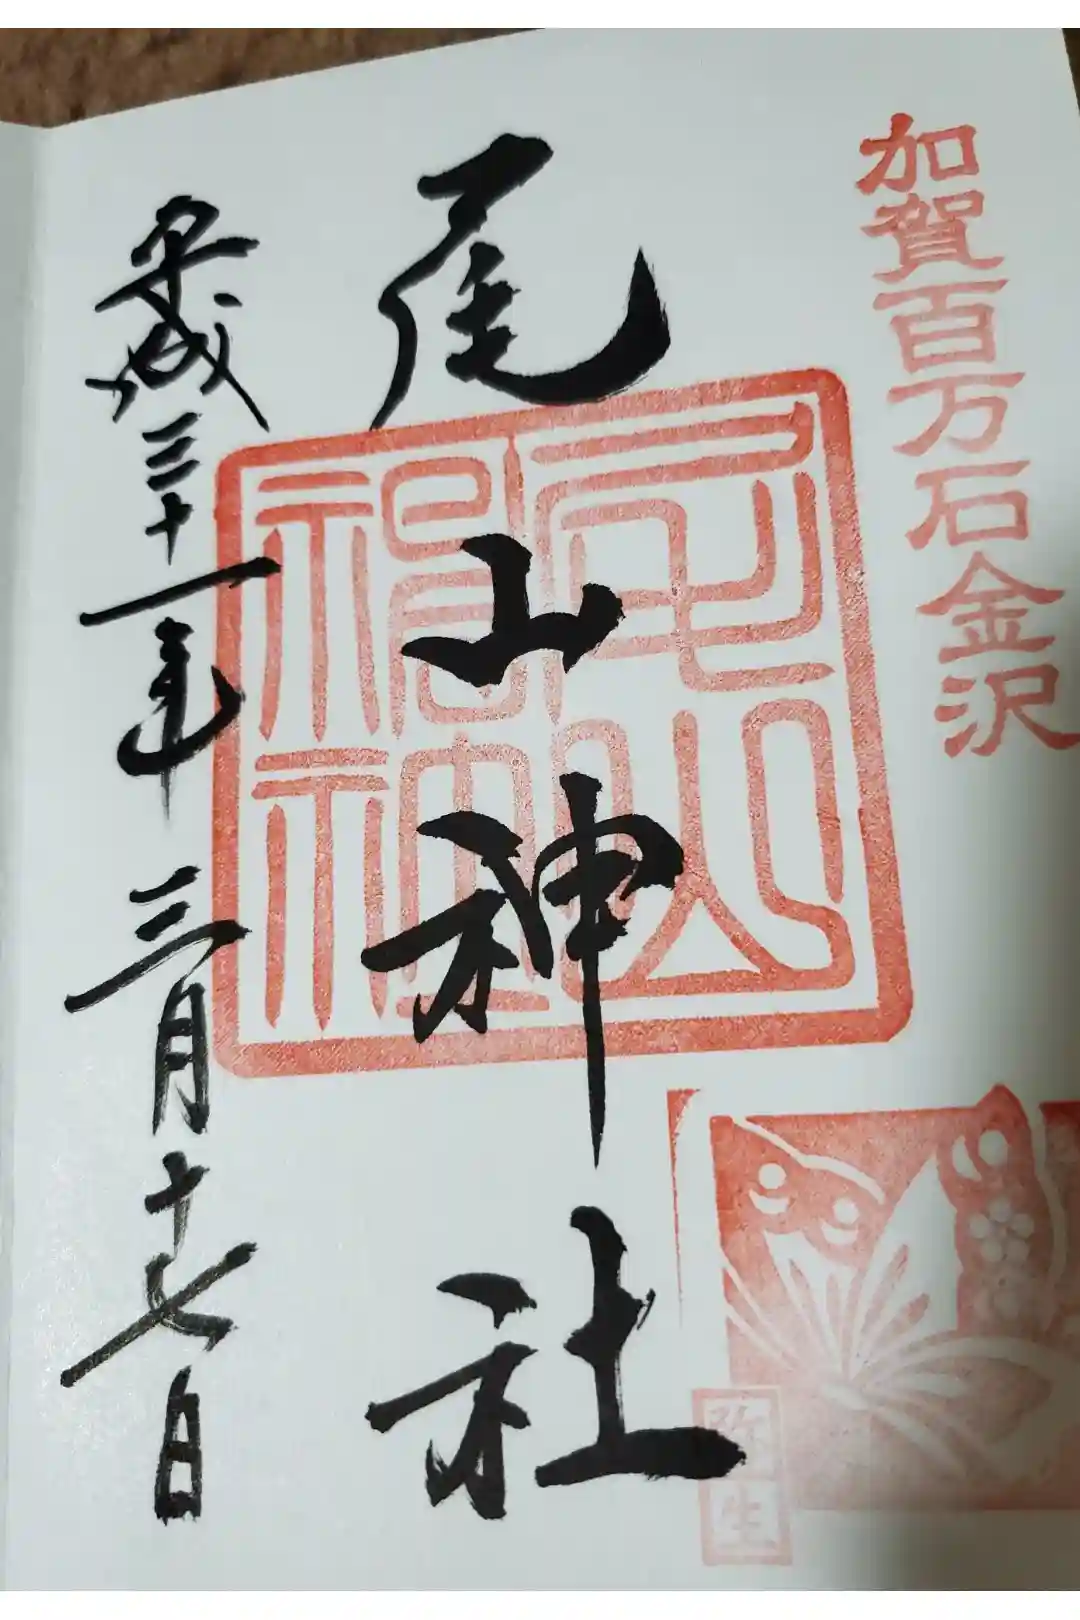 加賀百万石金沢
弥生
尾山神社
尾山神社
平成三十一年三月十七日